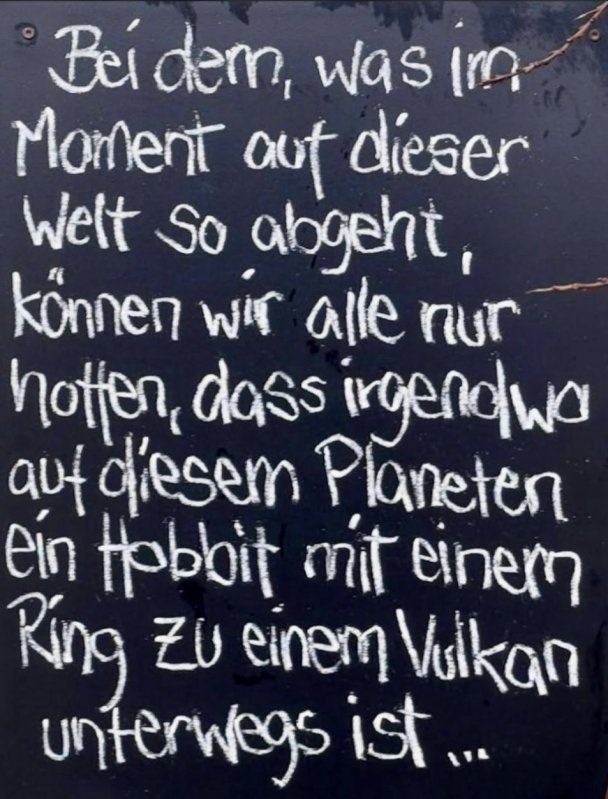 Bei dem, was im
Moment auf dieser
Welt so abgeht,
können wir alle nur
hoffen, dass irgendwo
auf diesem Planeten
ein Hobbit mit einem
Ring zu einem Vulkan
unterwegs ist...